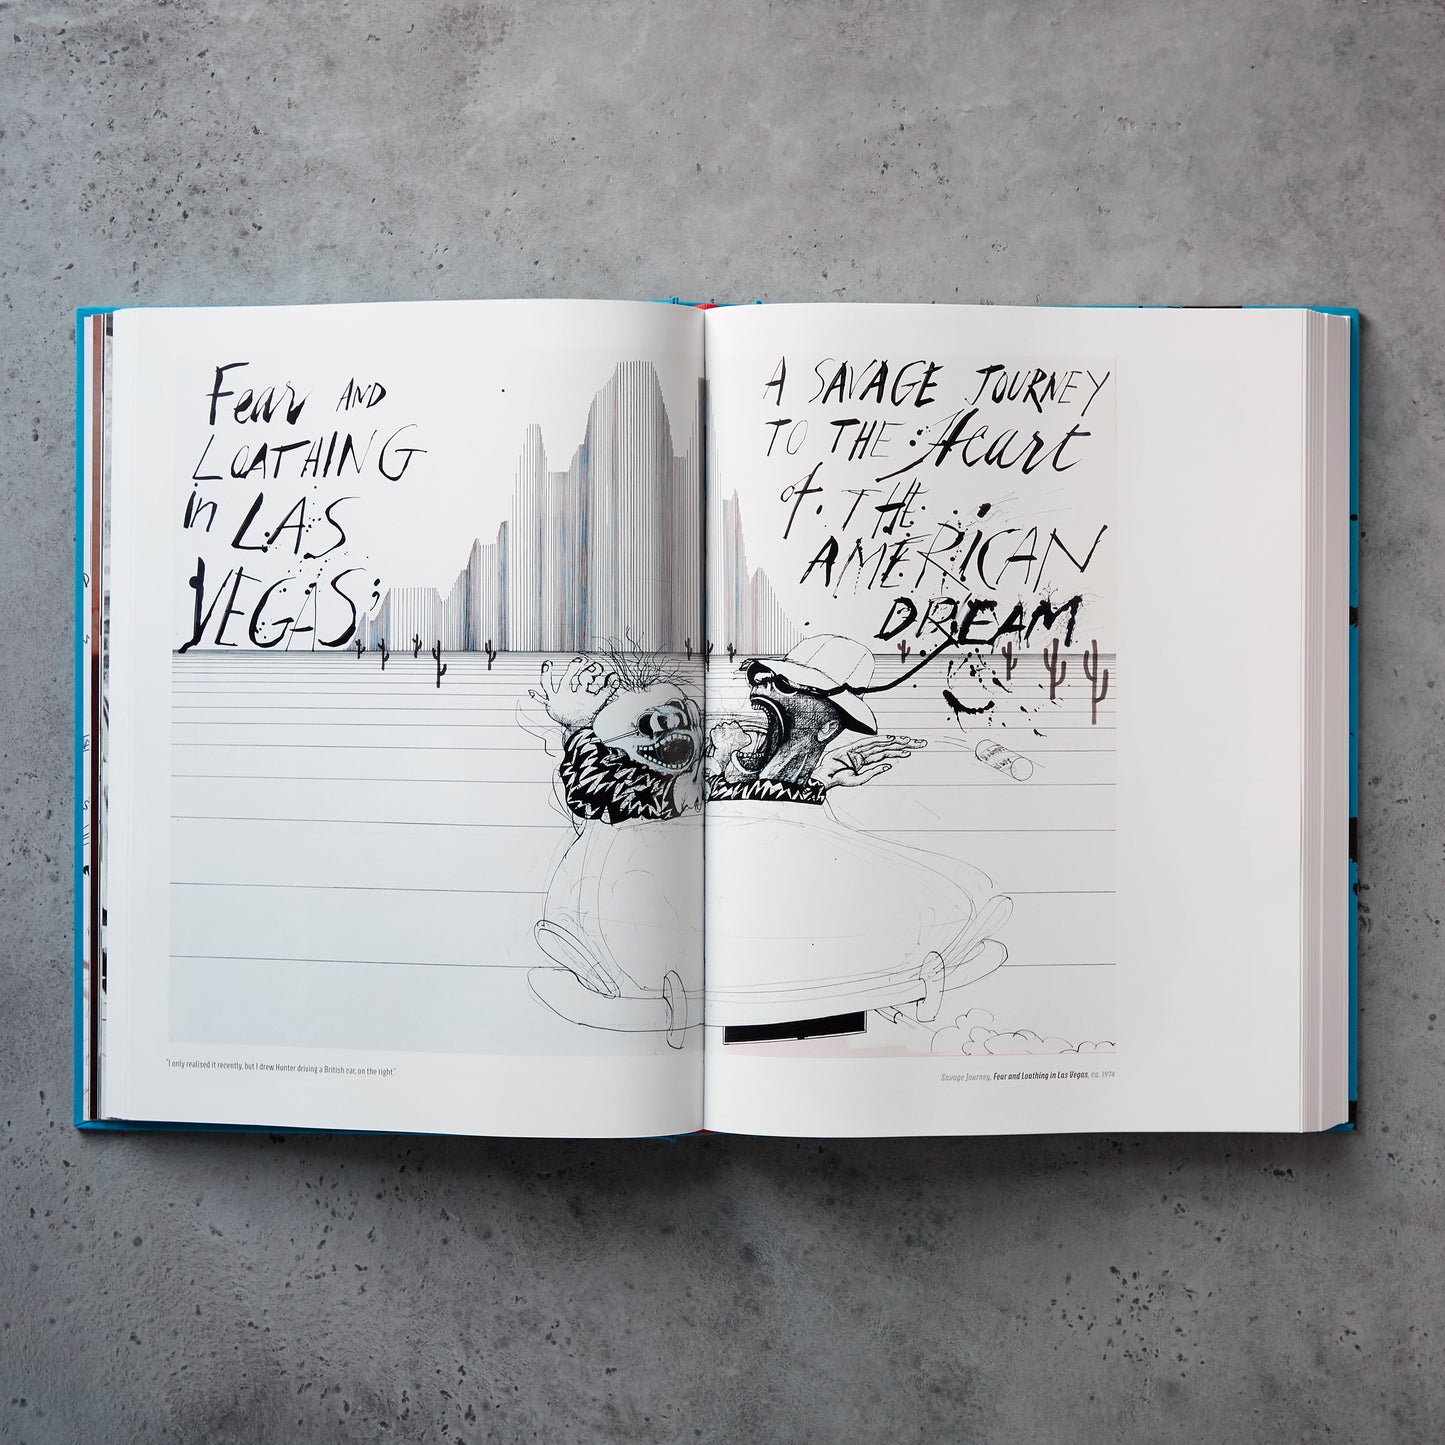 Fear AND
LOATHING
in LAS
VEGAS;
A SAVAGE JOURNEY
TO THE Heart
of. THE
AMERICAN
DREAM
"I only realised it recently, but I drew Hunter driving a British car, on the right."
Savage Journey, Fear and Loathing in Las Vegas, ca. 1974